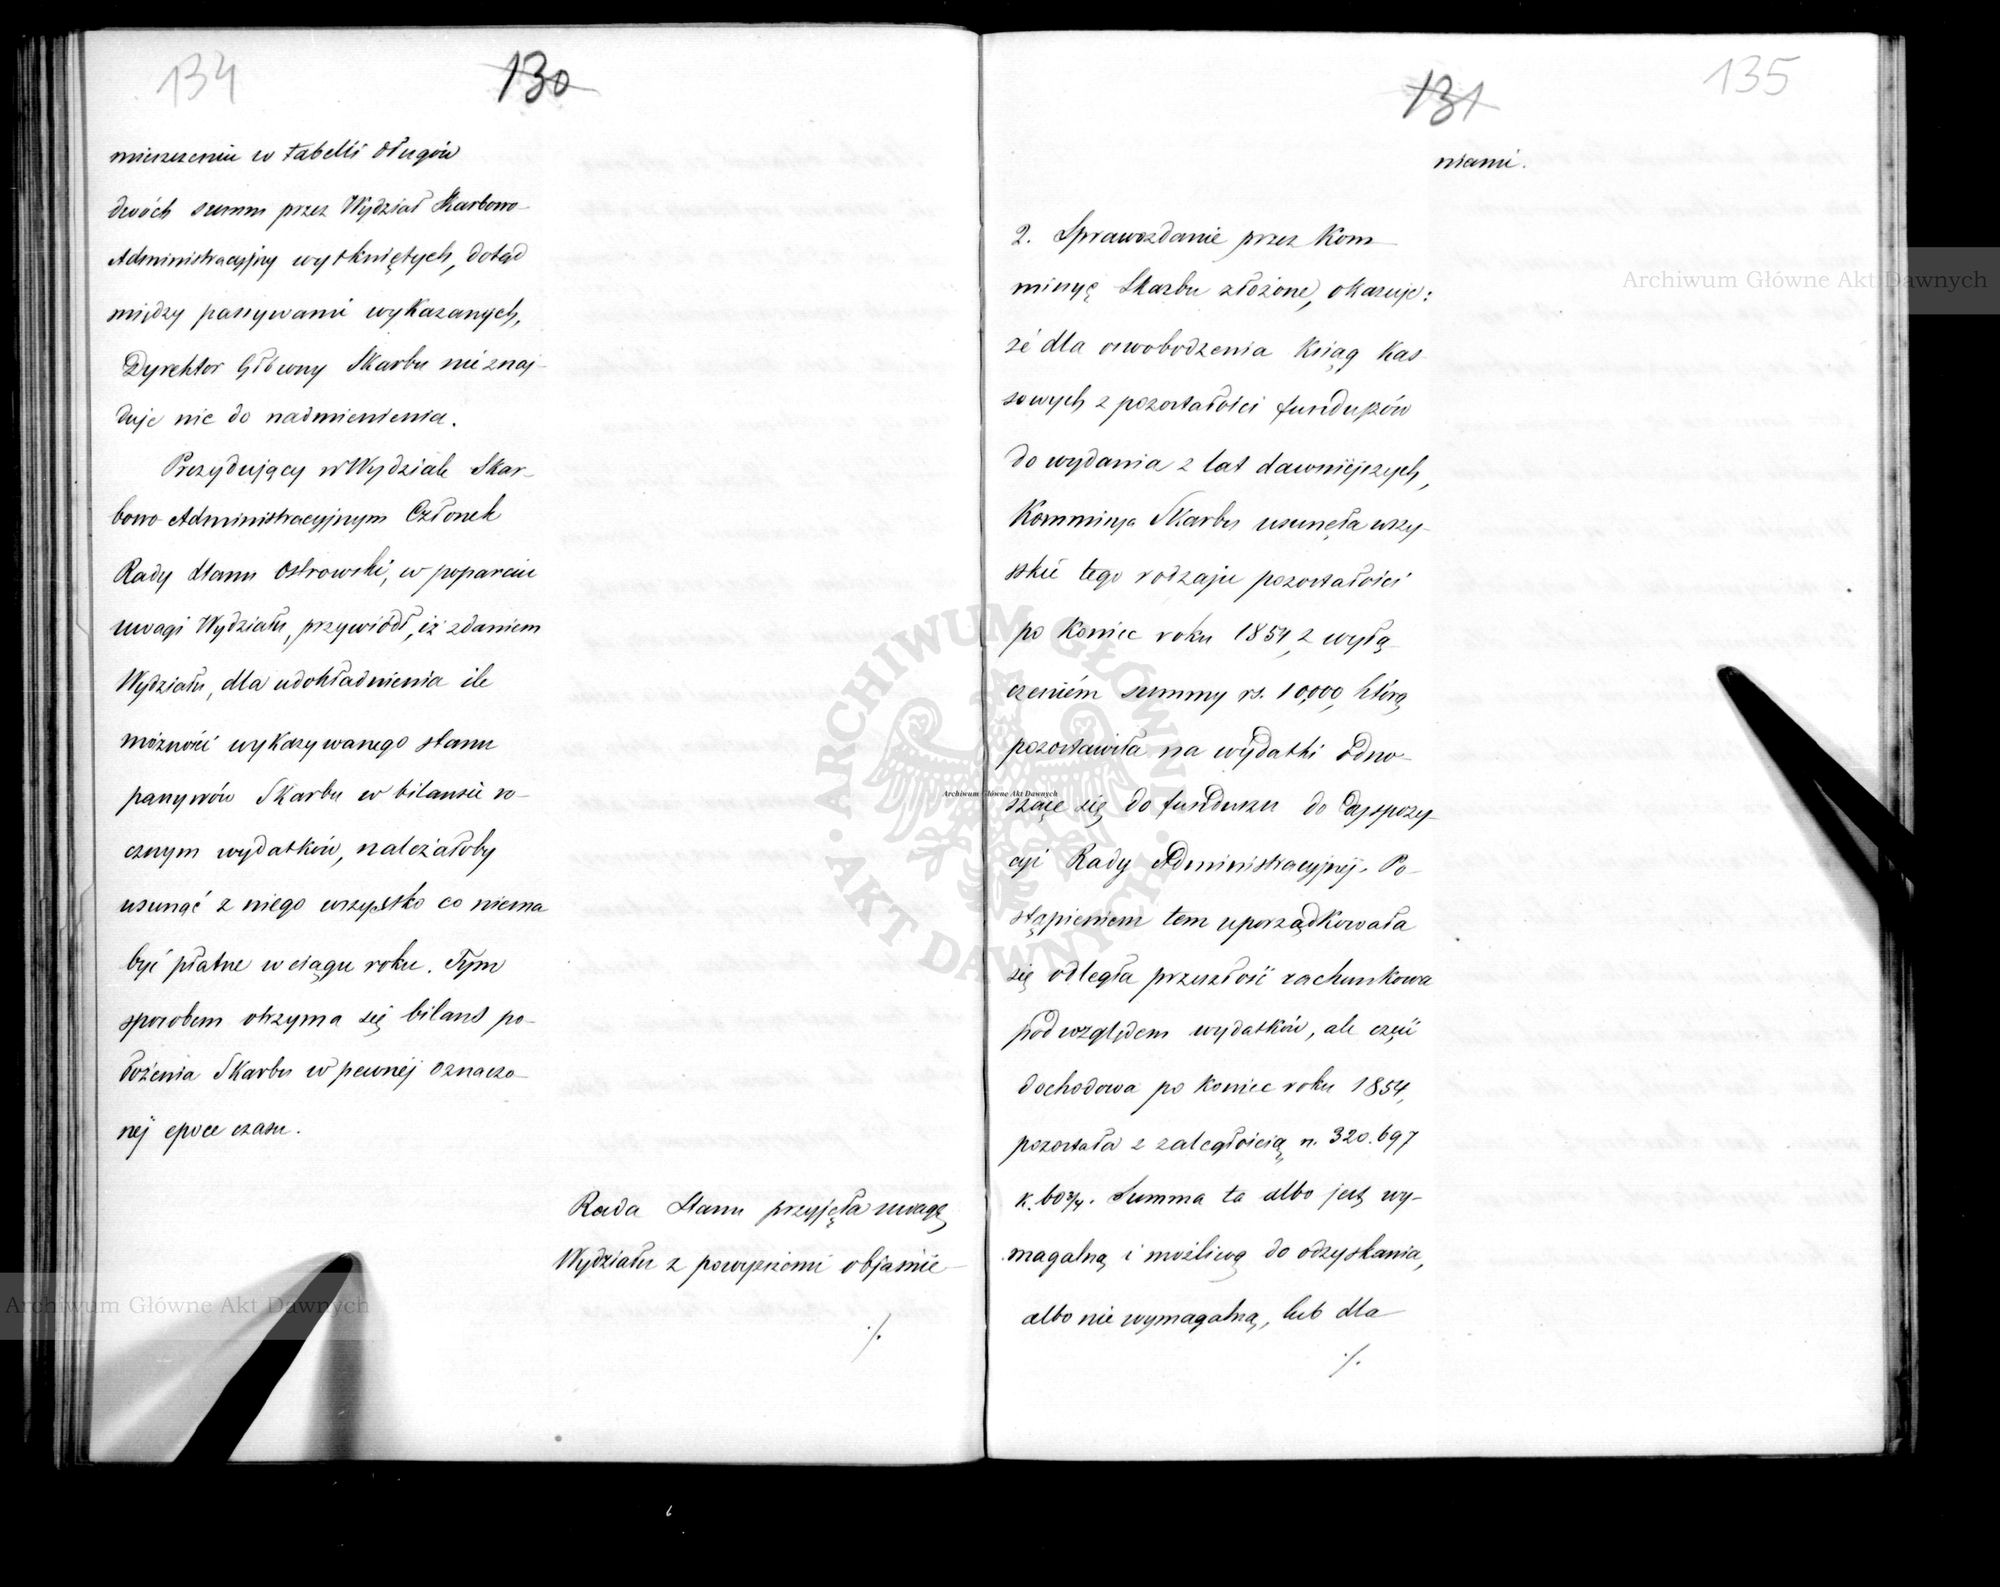 134
130
mieszczeniu w tabelli długów
dwóch summ przez Wydział Skarbowo-
Administracyjny wytkniętych, dotąd
między passywami wykazanych,
Dyrektor Główny Skarbu nieznaj-
duje nic do nadmienienia.
Prezydujący w Wydziale Skar-
bowo-Administracyjnym Członek
Rady Stanu Ostrowski, w poparciu
uwagi Wydziału, przywiódł, iż zdaniem
Wydziału, dla udokładnienia ile
możności wykazywanego stanu
passywów Skarbu w bilansie ro-
cznym wydatków, należałoby
usunąć z niego wszystko co niema
być płatne w ciągu roku. Tym
sposobem otrzyma się bilans po-
łożenia Skarbu w pewnéj oznaczo-
néj epoce czasu.
Rada Stanu przyjęła uwagę
Wydziału z powyższemi objaśnie-
./.
131
135
niami.
2. Sprawozdanie przez Kom-
missyę Skarbu złożone, okazuje:
że dla oswobodzenia Ksiąg Kas-
sowych z pozostałości funduszów
do wydania z lat dawniejszych,
Kommissya Skarbu usunęła wszy-
stkie tego rodzaju pozostałości
po koniec roku 1854, z wyłą-
czeniém summy rs. 10,000, którą
pozostawiła na wydatki odno-
szące się do funduszu do dyspozy-
cyi Rady Administracyjnéj. Po-
stąpieniem tem uporządkowała
się odległa przeszłość rachunkowa
pod względem wydatków, ale część
dochodowa po koniec roku 1854,
pozostała z zaległością rs. 320.697
k. 60¾. Summa ta albo jest wy-
magalną i możliwą do odzyskania,
albo nie wymagalną, lub dla
./.
Archiwum Główne Akt Dawnych
ARCHIWUM GŁÓWNE AKT DAWNYCH
Archiwum Główne Akt Dawnych
Archiwum Główne Akt Dawnych
6